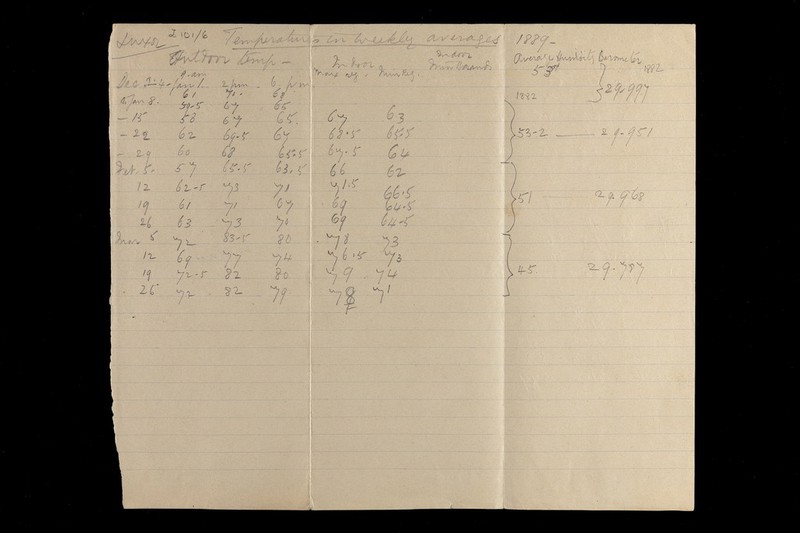 Luxor 2 101/6 Temperature in weekly averages 1889-
Outdoor temp - Indoor Indoor Average Humidity Barometer
9. am 2 pm . 6. pm max reg. min Reg. 53 1882
61 71. 68 1882 29.997
8 - 59.5 67 66
- 15 58 67 65. 67 63
- 22 62 69.5 67 68.5 65.5 53-2 29.951
- 29 60 68 65.5 67.5 64
Feb. 5. 57 65.5 63.5 66 62
12 62-5 73 71 71.5 66.5
19 61 71 67 69 64.5 51 29.968
26 63 73 70 69 64.5
5 72 83.5 80 78 73
12 69 77 74 76.5 73
19 72-5 82 80 79 74 45. 29.787
26 72 82 79 71